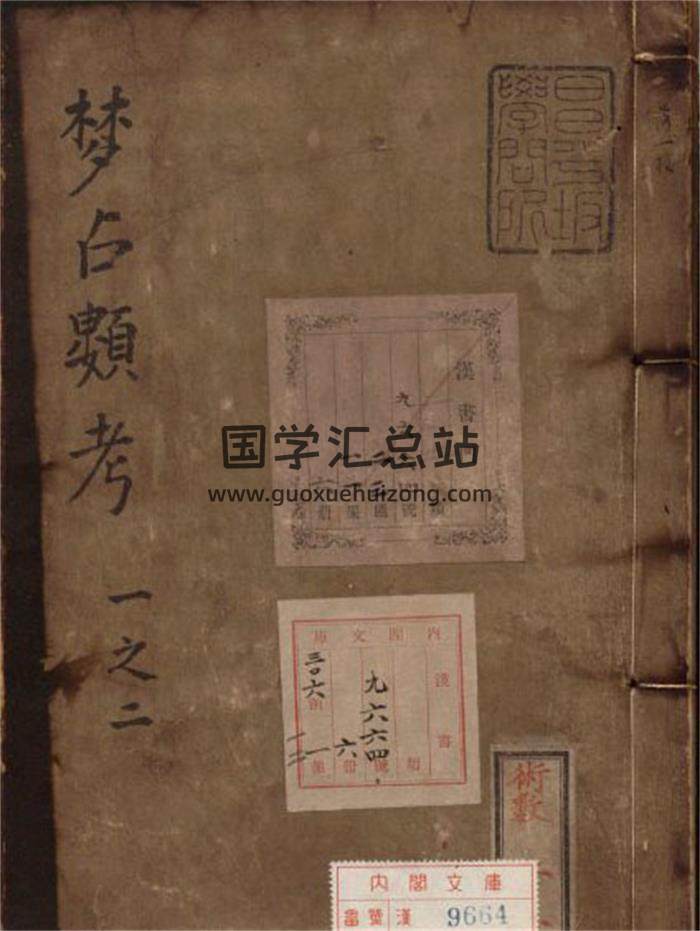 梦占類考
一之二
昌平坂
學問所
漢書
国学汇总站
www.guoxuehuizong.com
内閣文庫
漢書
九六六四
六
三〇六
函
術數
内閣文庫
番號 漢 9664